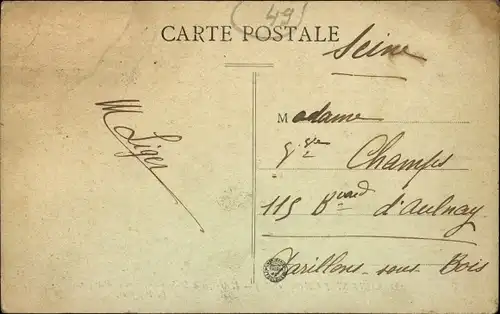 (49)
CARTE POSTALE
Seine
M Liger
Madame
Champs
115 Bvard d'Aulnay
Pavillons-sous-Bois